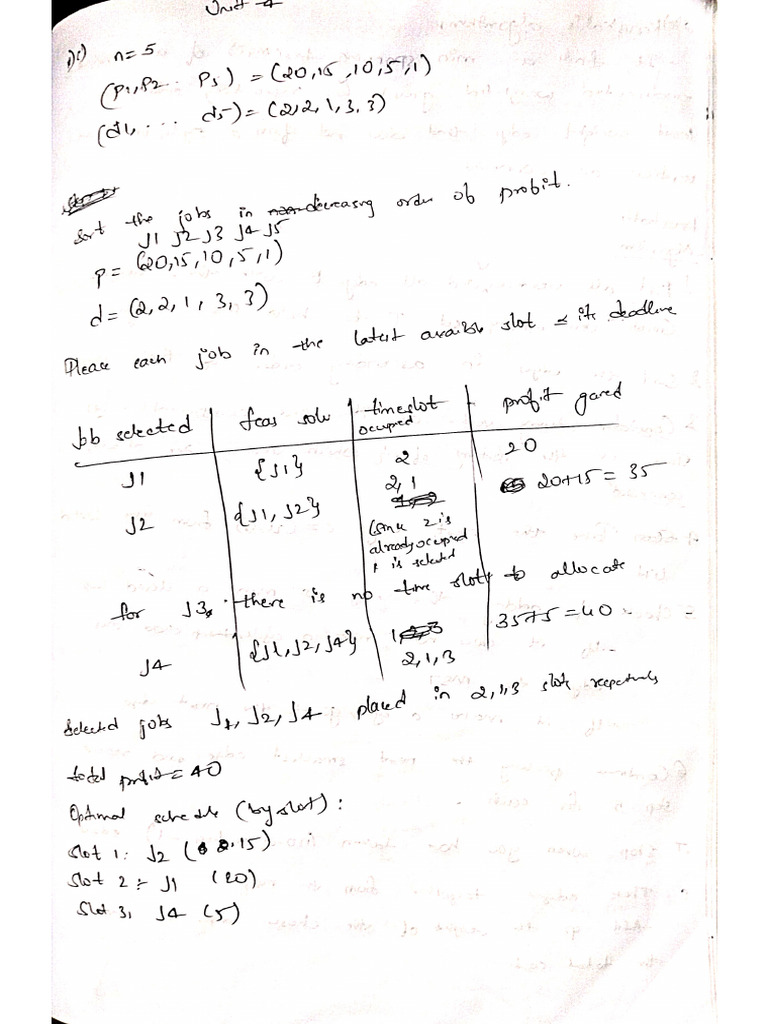 Unit - 4
1) i) n = 5
(P1, P2 .. P5) = (20, 15, 10, 5, 1)
(d1, ... d5) = (2, 2, 1, 3, 3)
Sort the jobs in decreasing order of profit.
J1 J2 J3 J4 J5
P = (20, 15, 10, 5, 1)
d = (2, 2, 1, 3, 3)
Please each job in the latest availble slot ≤ its deadline
Job selected feas solu timeslot occupied profit gared
J1 {J1} 2 20
J2 {J1, J2} 2, 1 20+15 = 35
(since 2 is
already occupied
1 is selected
for J3, there is no time slot to allocate
J4 {J1, J2, J4} 2, 1, 3 35+5 = 40
Selected jobs J1, J2, J4 placed in 2, 1, 3 slots respectively
total profit = 40
Optimal schedule (by slot) :
Slot 1: J2 (15)
Slot 2 :- J1 (20)
Slot 3, J4 (5)